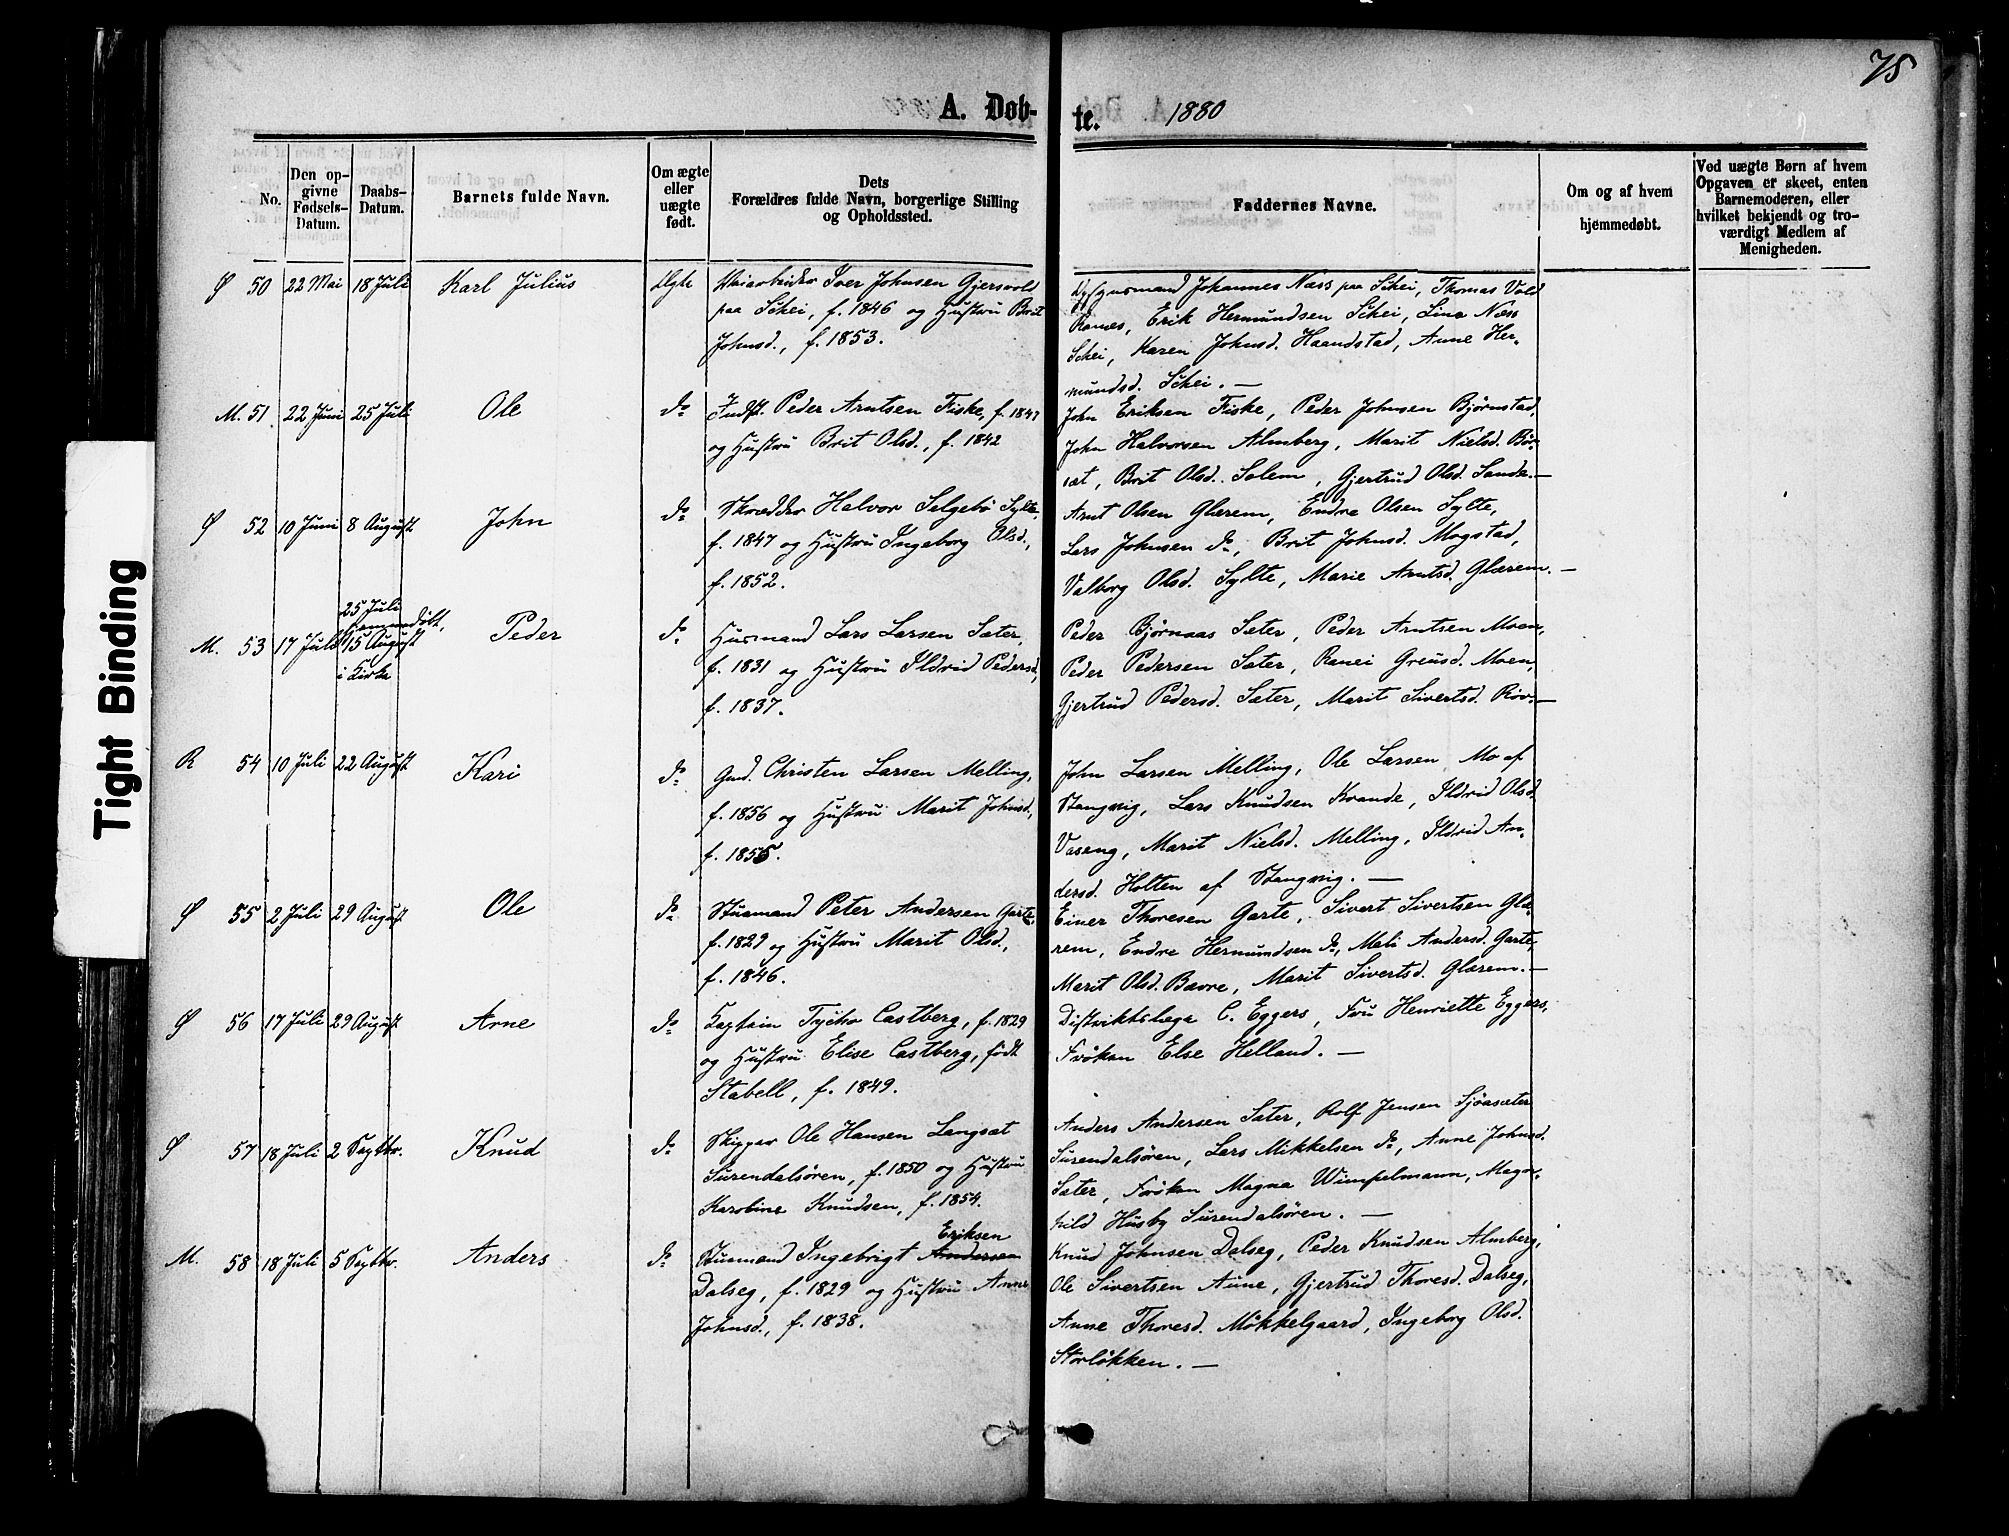 75
A. Døb-
te.
1880
No.
Den op-
givne
Fødsels-
Datum.
Daabs-
Datum.
Barnets fulde Navn.
Om ægte
eller
uægte
født.
Dets
Forældres fulde Navn, borgerlige Stilling
og Opholdssted.
Faddernes Navne.
Om og af hvem
hjemmedøbt.
Ved uægte Børn af hvem
Opgaven er skeet, enten
Barnemoderen, eller
hvilket bekjendt og tro-
værdigt Medlem af
Menigheden.
Ø 50 22 Mai 18 Juli Karl Julius Ægte Iver Johnsen Gjersvold
paa Schei, f. 1846 og Hustru Brit
Johnsd., f. 1853.
Johannes Næss paa Schei, Thomas Vold
Ranes, Erik Hermundsen Schei, Lina Næss
Schei, Karen Johnsd. Haandstad, Anne Her-
mundsd. Schei. —
M. 51 22 Juni 25 Juli Ole do Indst. Peder Arntsen Fiske, f. 1847
og Hustru Brit Olsd., f. 1842
John Eriksen Fiske, Peder Johnsen Bjørnstad,
John Halvorsen Almberg, Marit Nielsd. Bør-
sæt, Brit Olsd. Solem, Gjertrud Olsd. Sande. —
Ø 52 10 Juni 8 August John do Skrædder Halvor Selgebö Sylte,
f. 1847 og Hustru Ingeborg Olsd.,
f. 1852.
Arnt Olsen Glærem, Endre Olsen Sylte,
Lars Johnsen do, Brit Johnsd. Mogstad,
Valborg Olsd. Sylte, Marie Arntsd. Glærem. —
M. 53 17 Juli 25 Juli
hjemmedöbt,
15 August
i Kirke
Peder do Husmand Lars Larsen Sæter,
f. 1831 og Hustru Ildrid Pedersd.,
f. 1837.
Peder Bjørnaas Sæter, Peder Arntsen Moen,
Peder Pedersen Sæter, Ranei Greusd. Moen,
Gjertrud Pedersd. Sæter, Marit Sivertsd. Röv. —
R 54 10 Juli 22 August Kari do Gmd. Christen Larsen Melling,
f. 1856 og Hustru Marit Johnsd.,
f. 1855.
John Larsen Melling, Ole Larsen Mo af
Stangvig, Lars Knudsen Kvande, Ildrid Olsd.
Vaseng, Marit Nielsd. Melling, Ildrid An-
dersd. Holten af Stangvig. —
Ø 55 2 Juli 29 August Ole do Husmand Peter Andersen Garte,
f. 1829 og Hustru Marit Olsd.,
f. 1846.
Einer Thoresen Garte, Sivert Sivertsen Glæ-
rem, Endre Hermundsen do, Mali Andersd. Garte,
Marit Olsd. Bævre, Marit Sivertsd. Glærem. —
Ø 56 17 Juli 29 August Arne do Kaptain Tycho Castberg, f. 1829
og Hustru Elise Castberg, födt
Stabell, f. 1849.
Distriktslæge C. Eggers, Fru Henriette Eggers,
Fröken Else Helland. —
Ø 57 18 Juli 2 Septbr. Knud do Skipper Ole Hansen Langsæt
Surendalsören, f. 1850 og Hustru
Karoline Knudsen, f. 1854.
Anders Andersen Sæter, Rolf Jensen Sjöasæter
Surendalsören, Lars Mikkelsen do, Anne Johnsd.
Sæter, Fröken Magna Wimpelmann, Magn-
hild Husby Surendalsören. —
M. 58 18 Juli 5 Septbr. Anders do Husmand Ingebrigt Andersen Eriksen
Dalseg, f. 1829 og Hustru Anne
Johnsd., f. 1838.
Knud Johnsen Dalseg, Peder Knudsen Almberg,
Ole Sivertsen Aune, Gjertrud Thoresd. Dalseg,
Anne Thoresd. Mökkelgaard, Ingeborg Olsd.
Storlökken. —
Tight Binding